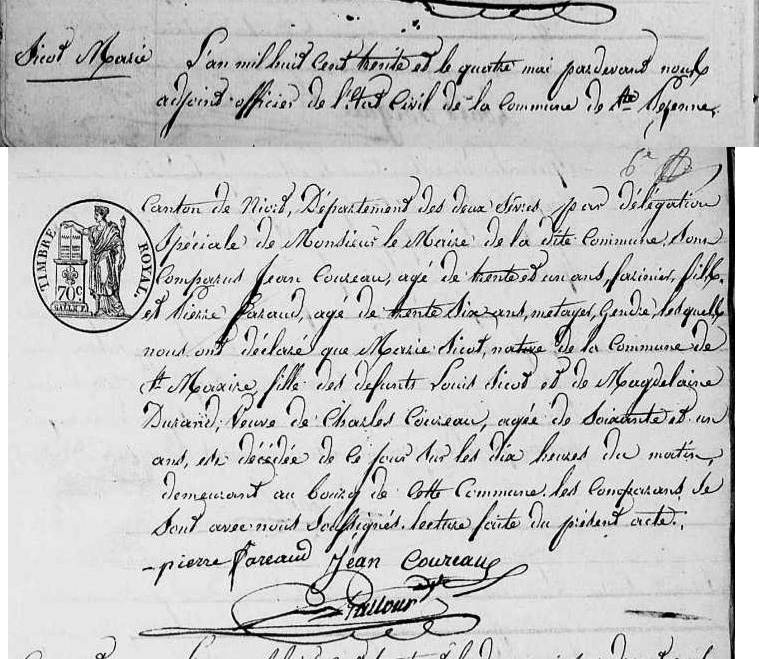 Sicot Marie
L'an mil huit cent trente et le quatre mai pardevant nous
adjoint officier de l'état civil de la commune de Ste Pezenne,
TIMBRE ROYAL.
70c
Canton de Niort, Département des deux Sèvres, par délégation
spéciale de Monsieur le Maire de la dite Commune, sont
Comparus Jean Coureau, agé de trente et un ans, farinier, fils,
et Pierre Fazaud, agé de trente six ans, metayer, Gendre, lesquels
nous ont déclaré que Marie Sicot, native de la Commune de
St Maxire, fille des defunts Louis Sicot et de Magdelaine
Durand, Veuve de Charles Coureau, agée de Soixante et un
ans, est décédée de ce jour sur les dix heures du matin,
demeurant au bourg de cette Commune. les Comparans, se
Sont avec nous Soussignés. lecture faite du présent acte.
pierre Jean Coureau